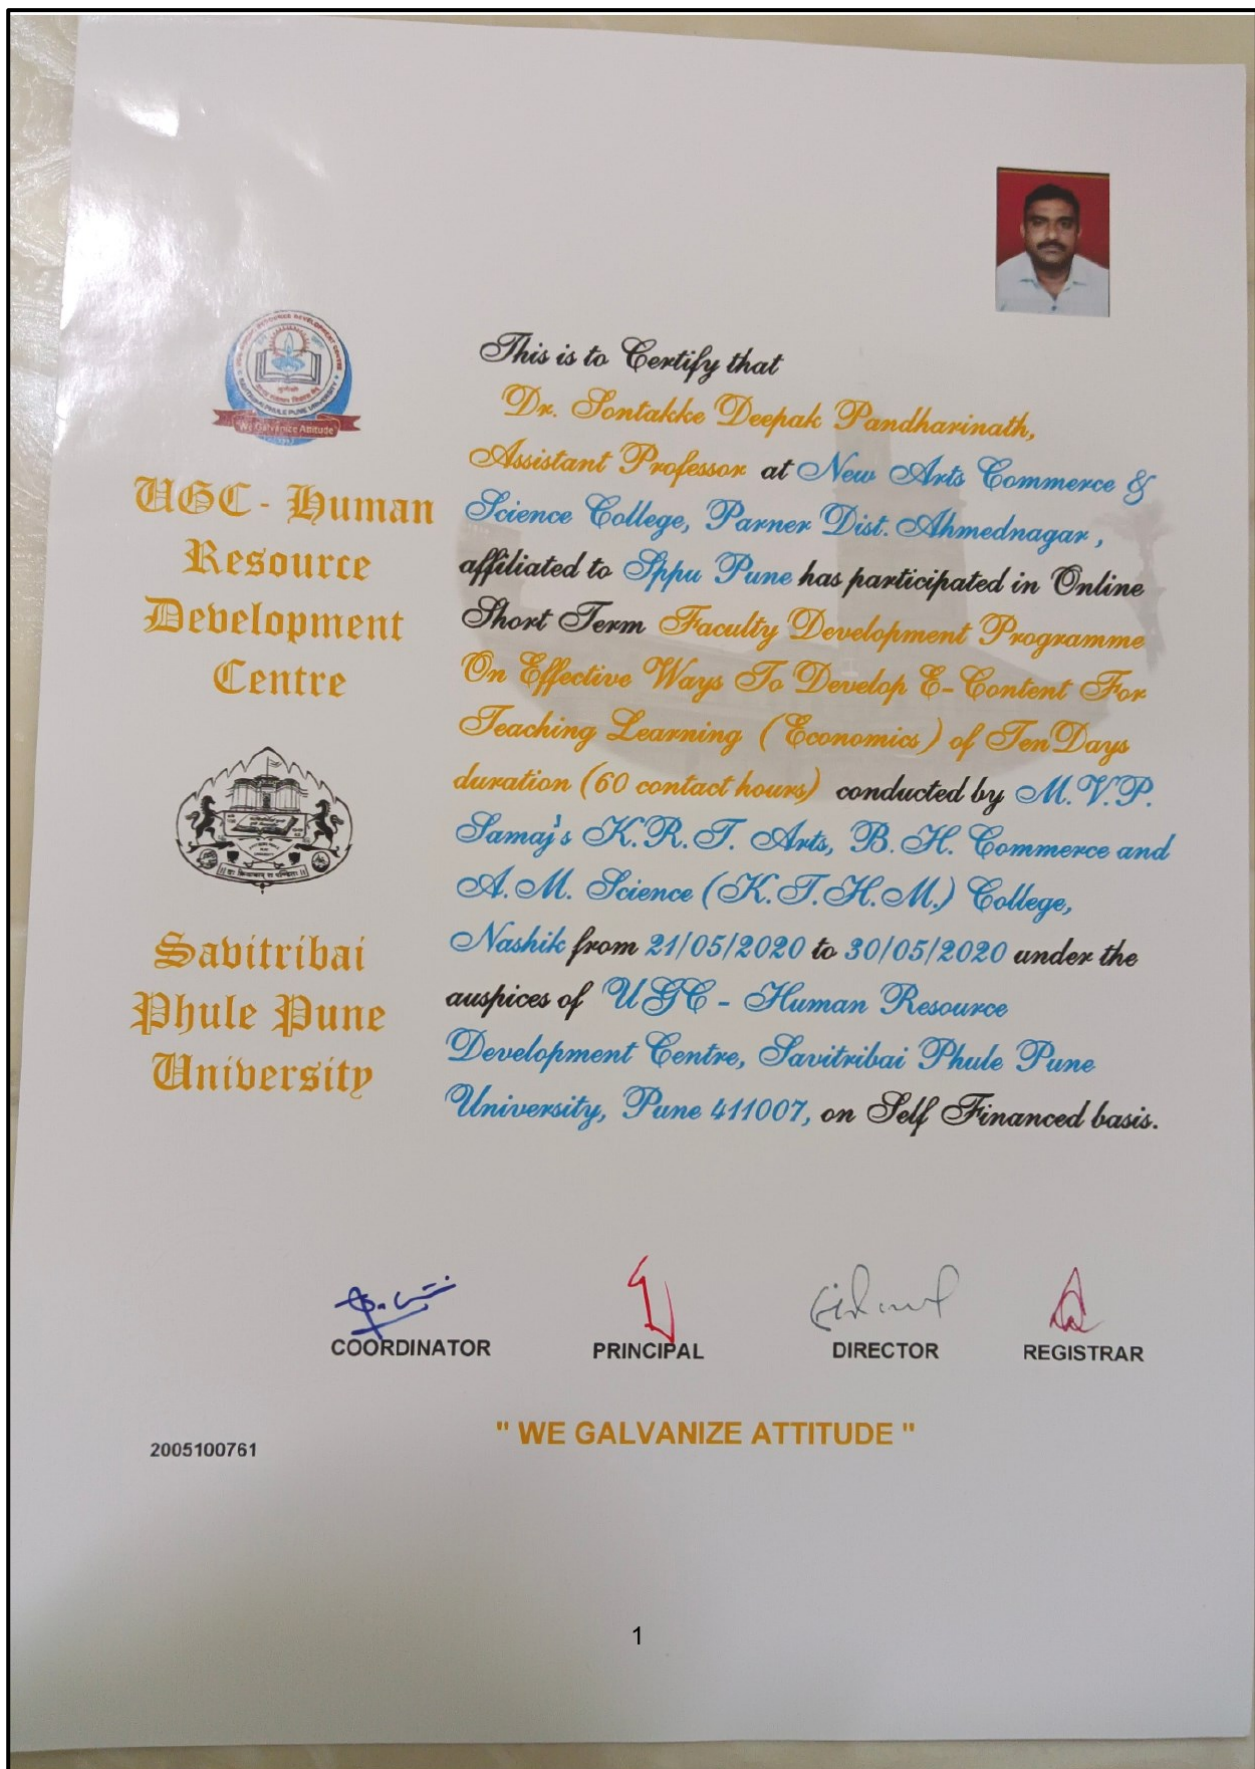 UGC - HUMAN RESOURCE DEVELOPMENT CENTRE
SAVITRIBAI PHULE PUNE UNIVERSITY
"We Galvanize Attitude"
UGC - Human
Resource
Development
Centre
Savitribai
Phule Pune
University
This is to Certify that
Dr. Sontakke Deepak Pandharinath,
Assistant Professor at New Arts Commerce &
Science College, Parner Dist. Ahmednagar ,
affiliated to Sppu Pune has participated in Online
Short Term Faculty Development Programme
On Effective Ways To Develop E-Content For
Teaching Learning ( Economics ) of Ten Days
duration (60 contact hours) conducted by M.V.P.
Samaj's K.R.T. Arts, B.H. Commerce and
A.M. Science (K.T.H.M.) College,
Nashik from 21/05/2020 to 30/05/2020 under the
auspices of UGC - Human Resource
Development Centre, Savitribai Phule Pune
University, Pune 411007, on Self Financed basis.
COORDINATOR
PRINCIPAL
DIRECTOR
REGISTRAR
" WE GALVANIZE ATTITUDE "
2005100761
1